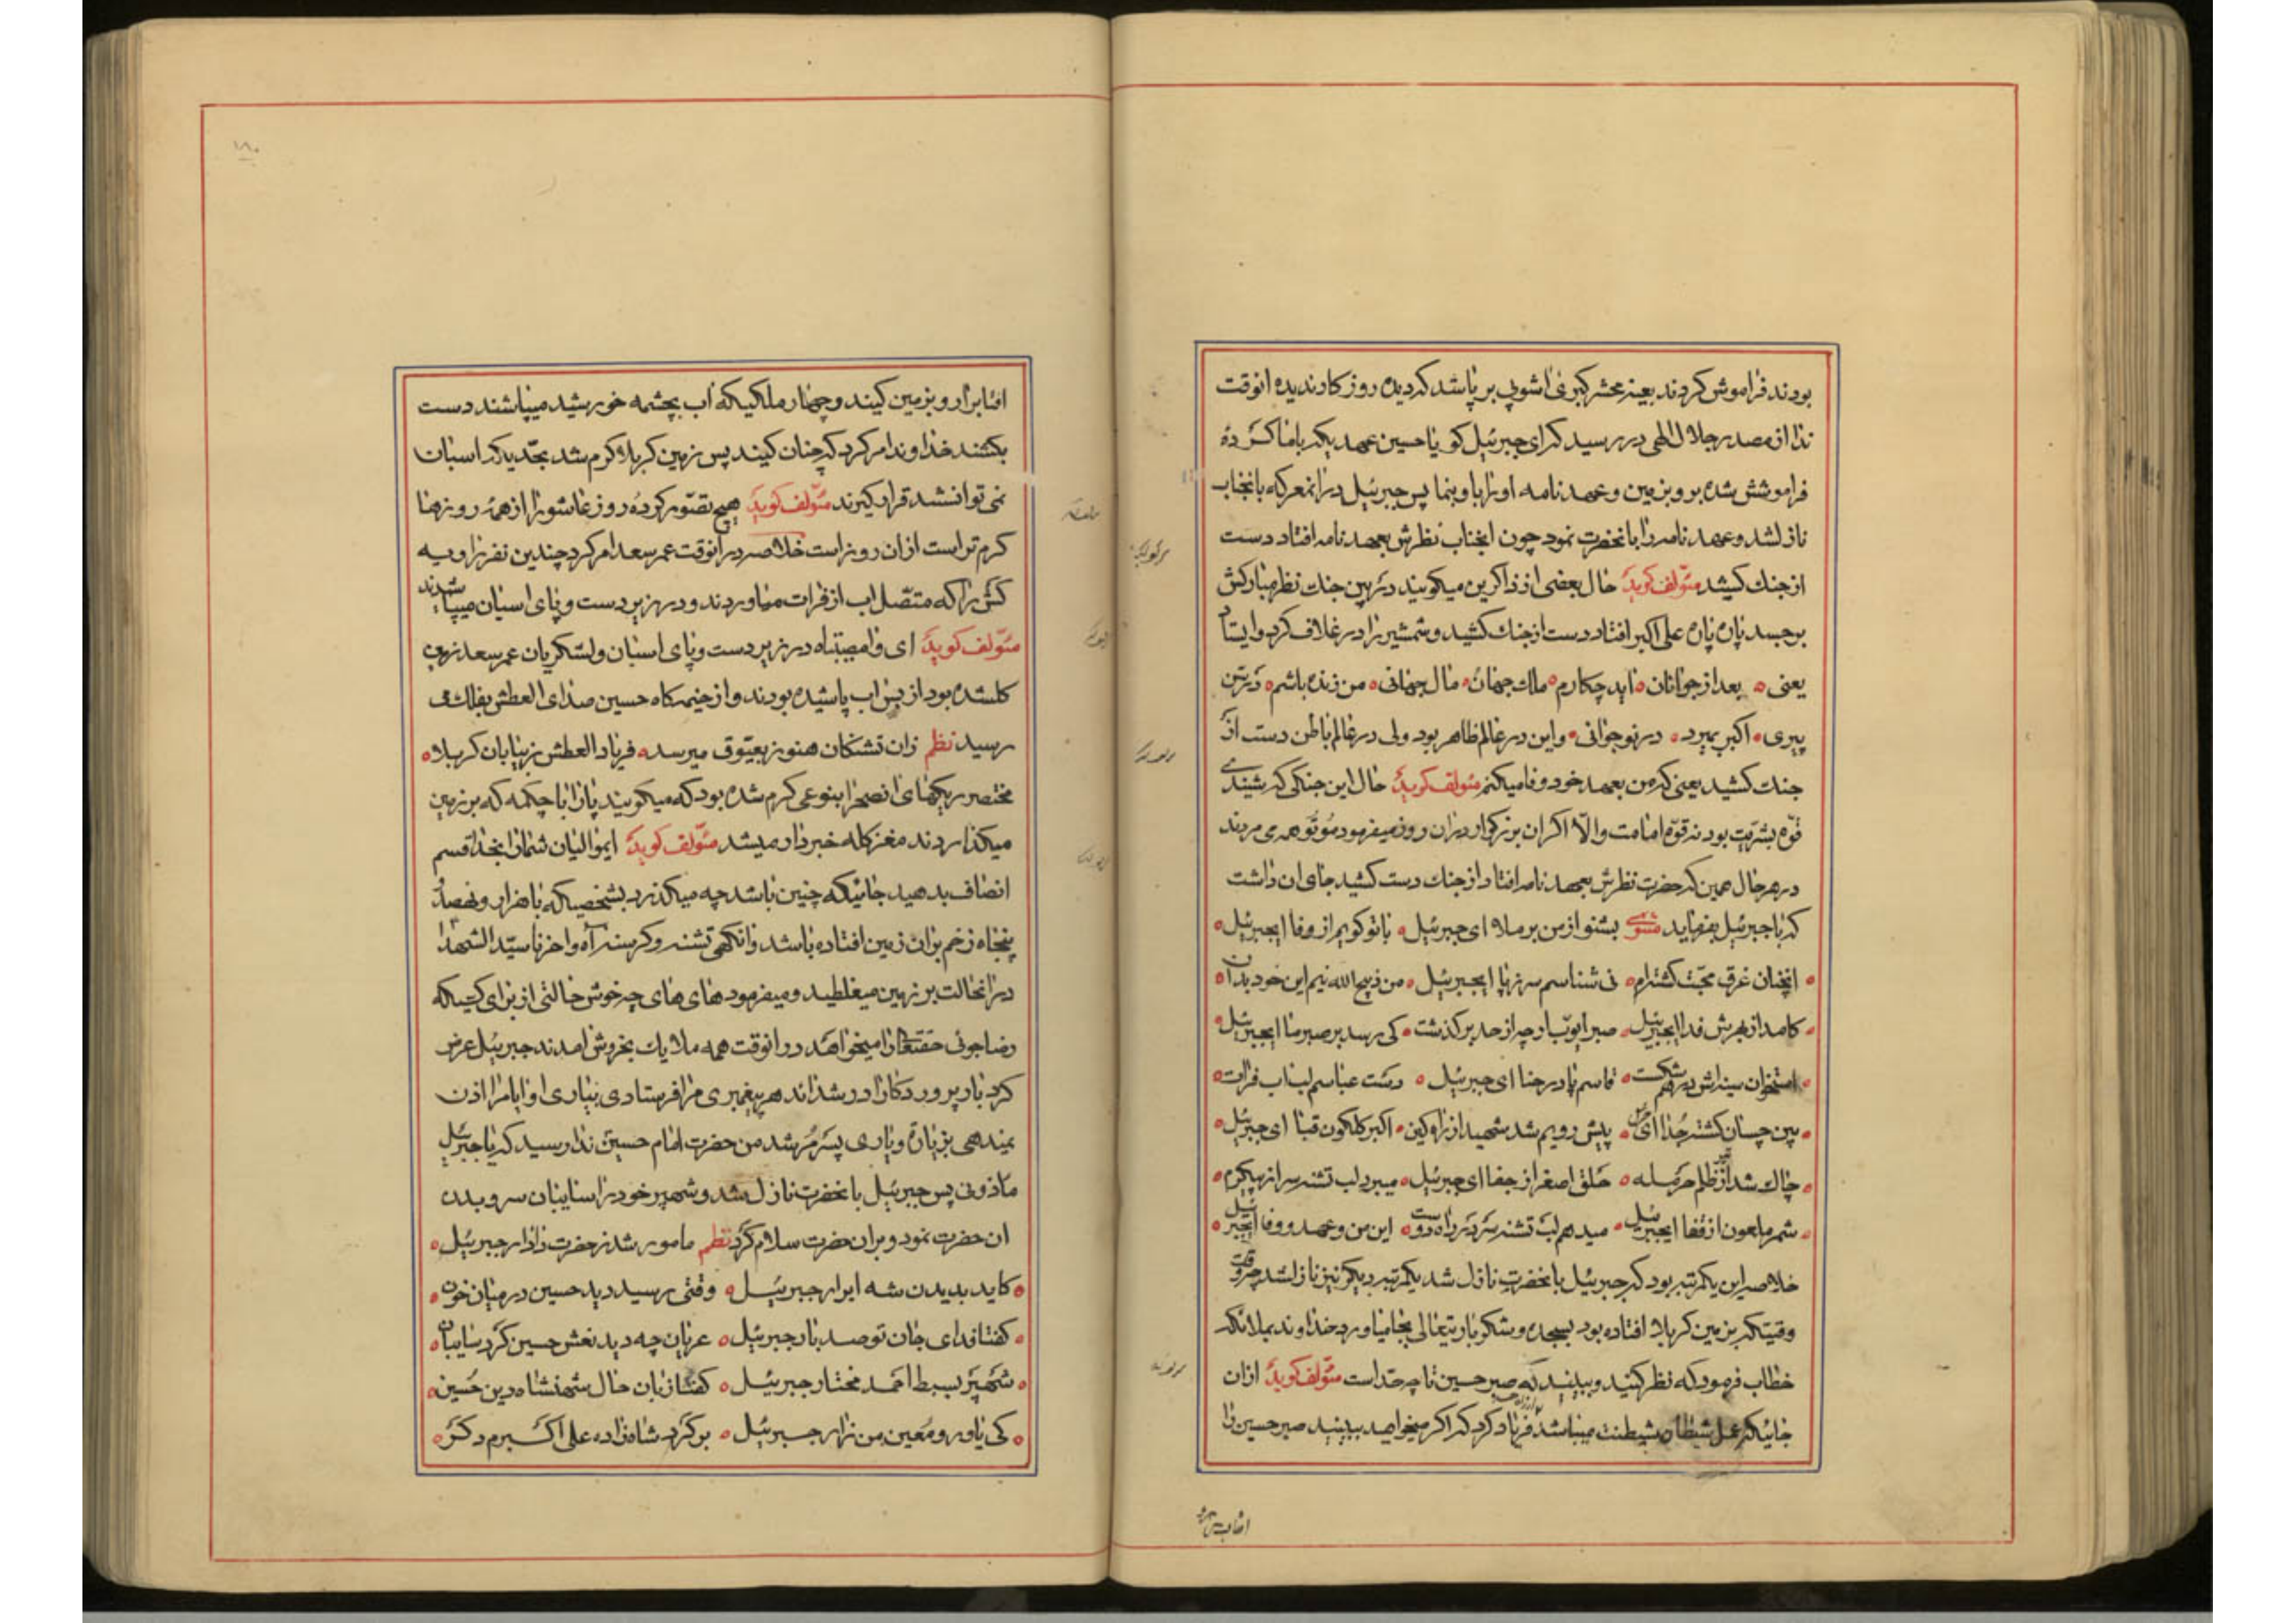 بودند فراموش کردند بعینه محشر کبری اشوبی برپا شد که دیده روزکار ندیده انوقت
ندا از مصدر جلال اللهی در رسید که ای جبرئیل کو یا حسین عهدیکه با ما کرده
فراموشش شده برو بزمین و عهدنامه او را باو بنما پس جبرئیل در انمعرکه بانجناب
نازلشد و عهدنامه را بانحضرت نمود چون انجناب نظرش بعهدنامه افتاد دست
از جنک کشید مؤلف کوید حال بعضی از ذاکرین میکویند در بین جنک نظر مبارکش
بر جسد پاره پاره علی اکبر افتاد دست از جنک کشید و شمشیر را در غلاف کرد و ایستاد
یعنی بعد از جوانان ناید چکارم ملک جهان مال جهانی من زنده باشم در سن
پیری اکبر بمیرد در نوجوانی و این در عالم ظاهر بود ولی در عالم باطن دست از
جنک کشید یعنی که من بعهد خود وفا میکنم مؤلف کوید حال این جنکی که شنیدی
قوّه بشریّت بود نه قوّه امامت والّا اکر ان بزرکوار در ان روز میفرمود موتوا همه می مردند
در هر حال همین که حضرت نظرش بعهدنامه افتاد از جنک دست کشید جای ان داشت
که با جبرئیل بفرماید مثنوی بشنو از من برملا ای جبرئیل با تو کویم از وفا ایجبرئیل
انچنان غرق محبّت کشته‌ام نی شناسم سر ز پا ایجبرئیل من ذبیح الله نیم این خود بدان
کامد از بهرش فدا ایجبرئیل صبر ایوب ارچه از حد برکذشت کی رسد بر صبر ما ایجبرئیل
استخوان سینه‌اش درهم شکست قاسم پا در حنا ای جبرئیل دست عباسم لب اب فرات
بین چسان کشته جدا ای جبرئیل پیش رویم شد شهید از راه کین اکبر کلکون قبا ای جبرئیل
چاک شد از تیر ظلم حرمله حلق اصغر از جفا ای جبرئیل میبرد لب تشنه سر از پیکرم
شمر ملعون از قفا ایجبرئیل میدهم لب تشنه سر در راه دوست این من و عهد و وفا ایجبرئیل
خلاصه این یکمرتبه بود که جبرئیل بانحضرت نازل شد یکمرتبه دیکر نیز نازلشد
وقتیکه بزمین کربلا افتاده بود بسجده و شکر باریتعالی بجا میاورد خداوند بملائکه
خطاب فرمود که نظر کنید و ببینید که صبر حسین تا چه حدّ است مؤلف کوید از ان
جائیکه عمل شیطان شیطنت میباشد فریاد کرد که اکر میخواهید ببینید صبر حسین را
افتاب را برو
۱۸۰
افتابرا رو بزمین کنید و چهار ملکیکه اب بچشمه خورشید میپاشند دست
بکشند خداوند امر کرد که چنان کنید پس زمین کربلا کرم شد بحدّیکه اسبان
نمی توانستند قرار کیرند مؤلف کوید هیچ تصوّر کرده روز عاشورا از همه روزها
کرم تر است از ان روز است خلاصه در انوقت عمر سعد امر کرد چندین نفر راویه
کش را که متصل اب از فرات میاوردند و در زیر دست و پای اسبان میپاشیدند
مؤلف کوید ای وامصیبتاه در زیر دست و پای اسبان و لشکریان عمر سعد زمین
کلشده بود از بس اب پاشیده بودند و از خیمه‌کاه حسین صدای العطش بفلک می
رسید نظم زان تشنکان هنوز بعیّوق میرسد فریاد العطش ز بیابان کربلا
مختصر ریکهای انصحرا بنوعی کرم شده بود که میکویند پا را با چکمه که بر زمین
میکذاردند مغز کله خبردار میشد مؤلف کوید ایموالیان شما را بخدا قسم
انصاف بدهید جائیکه چنین باشد چه میکذرد بشخصیکه با هزار و نهصد و
پنجاه زخم بر ان زمین افتاده باشد وانکهی تشنه و کرسنه آه واحزنا سیّد الشهدا
در انحالت بر زمین میغلطید و میفرمود های های چه خوش حالتی از برای کسیکه
رضاجوئی حقتعالی را میخواهد در انوقت همه ملایک بخروش امدند جبرئیل عرض
کرد بار پروردکارا در شداند هر پیغمبری مرا فرستادی بیاری او ایا مرا اذن
میدهی بزیارت و یاری پسر مرشد من حضرت امام حسین ندا رسید که یا جبرئیل
ماذونی پس جبرئیل بانحضرت نازل شد و شهپر خود را سایبان سر و بدن
ان حضرت نمود و بران حضرت سلام کرد نظم مامور شد ز حضرت دادار جبرئیل
کاید بدیدن شه ابرار جبرئیل وقتی رسید دید حسین در میان خون
کفتا فدای جان تو صد بار جبرئیل عریان چه دید نعش حسین کرد سایبان
شهپر بسبط احمد مختار جبرئیل کفتا زبان حال شهنشاه دین حسین
کی یاور و معین من زار جبرئیل برکرد شاه‌زاده علی اکبرم دکر